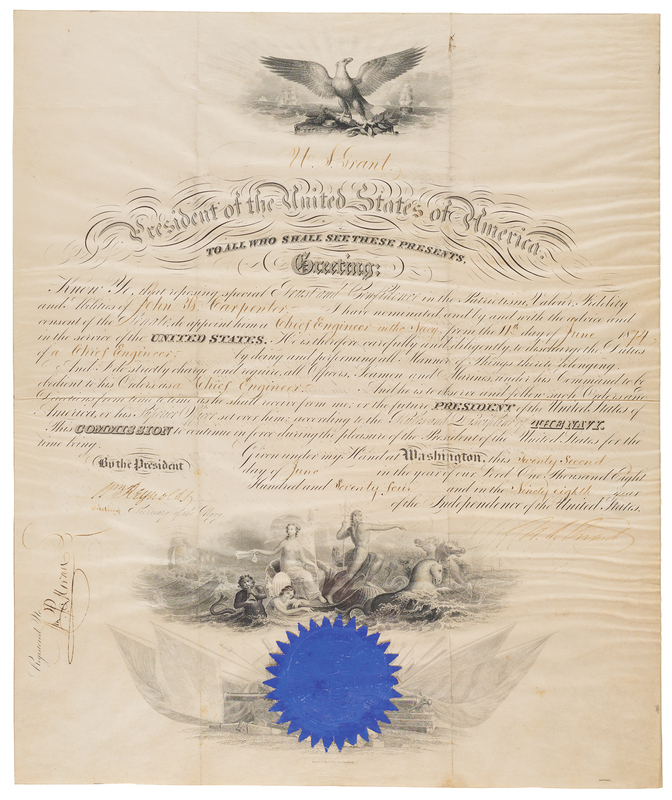 U. S. Grant,
President of the United States of America.
TO ALL WHO SHALL SEE THESE PRESENTS,
Greeting:
Know Ye, that reposing special Trust and Confidence in the Patriotism, Valour, Fidelity
and Abilities of John W. Carpenter, I have nominated and by and with the advice and
consent of the Senate do appoint him a Chief Engineer in the Navy from the 11th day of June 1874
in the service of the UNITED STATES. He is therefore carefully and diligently, to discharge the Duties
of a Chief Engineer, by doing and performing all Manner of Things thereto belonging.
And I do strictly charge and require all Officers, Seamen and Marines, under his Command to be
obedient to his Orders as a Chief Engineer. And he is to observe and follow such Orders and
Directions from time to time as he shall receive from me, or the future PRESIDENT of the United States of
America, or his Superior Officer set over him, according to the Rules and Discipline of THE NAVY.
This COMMISSION to continue in force during the pleasure of the President of the United States for the
time being.
Given under my Hand at Washington, this Twenty Second
By the President
day of June in the year of our Lord One Thousand Eight
Hundred and Seventy Four and in the Ninety eighth year
of the Independence of the United States.
Secretary of the Navy
U. S. Grant
Registered No.